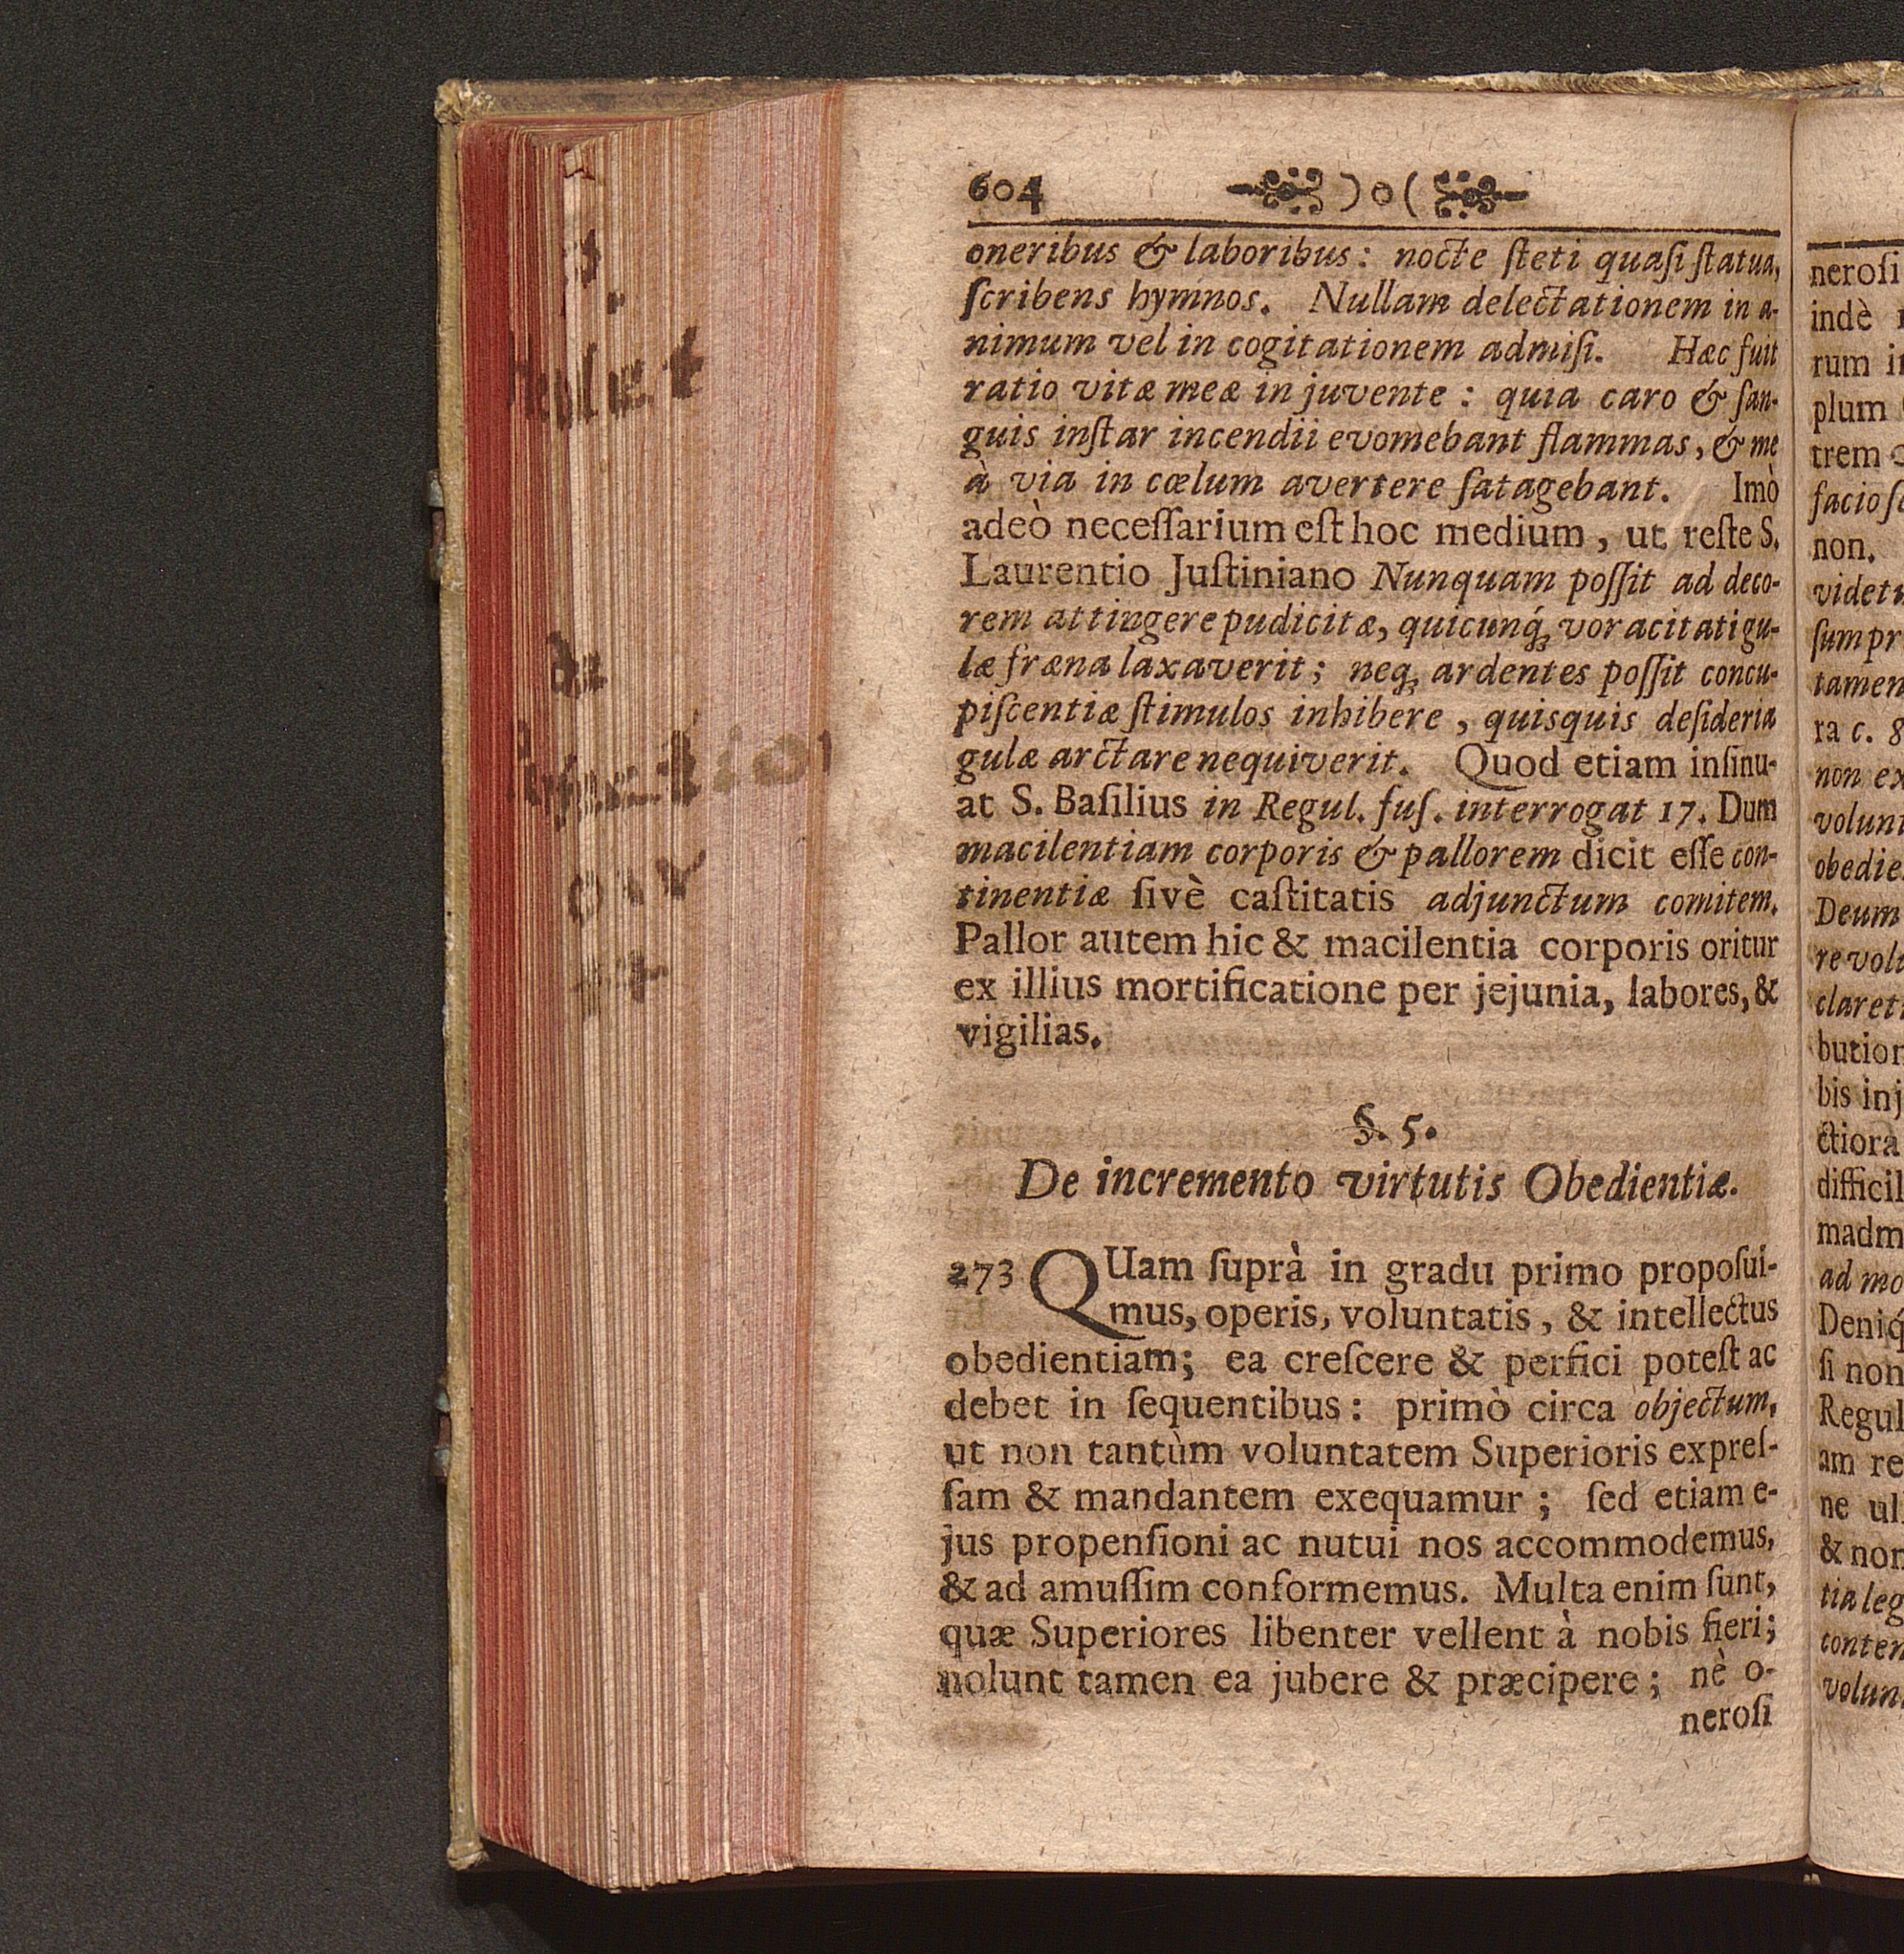 604 ) o (
oneribus & laboribus: nocte ſteti quaſi ſtatua,
ſcribens hymnos. Nullam delectationem in a-
nimum vel in cogitationem admiſi. Hæc fuit
ratio vitæ meæ in juvente: quia caro & ſan-
guis inſtar incendii evomebant flammas, & me
à via in cœlum avertere ſatagebant. Imò
adeò neceſſarium eſt hoc medium, ut reſte S.
Laurentio Juſtiniano Nunquam poſſit ad deco-
rem attingere pudicitæ, quicunq́; voracitati gu-
læ fræna laxaverit; neq; ardentes poſſit concu-
piſcentiæ ſtimulos inhibere, quisquis deſideria
gulæ arctare nequiverit. Quod etiam inſinu-
at S. Baſilius in Regul. fuſ. interrogat 17. Dum
macilentiam corporis & pallorem dicit eſſe con-
tinentiæ ſivè caſtitatis adjunctum comitem.
Pallor autem hic & macilentia corporis oritur
ex illius mortificatione per jejunia, labores, &
vigilias.
§. 5.
De incremento virtutis Obedientiæ.
273 QUam ſuprà in gradu primo propoſui-
mus, operis, voluntatis, & intellectus
obedientiam; ea creſcere & perfici poteſt ac
debet in ſequentibus: primò circa objectum,
ut non tantùm voluntatem Superioris expreſ-
ſam & mandantem exequamur; ſed etiam e-
jus propenſioni ac nutui nos accommodemus,
& ad amuſſim conformemus. Multa enim ſunt,
quæ Superiores libenter vellent à nobis fieri;
nolunt tamen ea jubere & præcipere; nè o-
neroſi
neroſi
indè
rum
plum
trem
facio
non.
ſum
tamen
ra c. 8
non
obedie
Deum
re
claret
bution
bis inj
ctiora
difficil
madm
ad mo
Deniq
ſi non
Regul
am re
ne ul
& non
tia leg
conten
volun